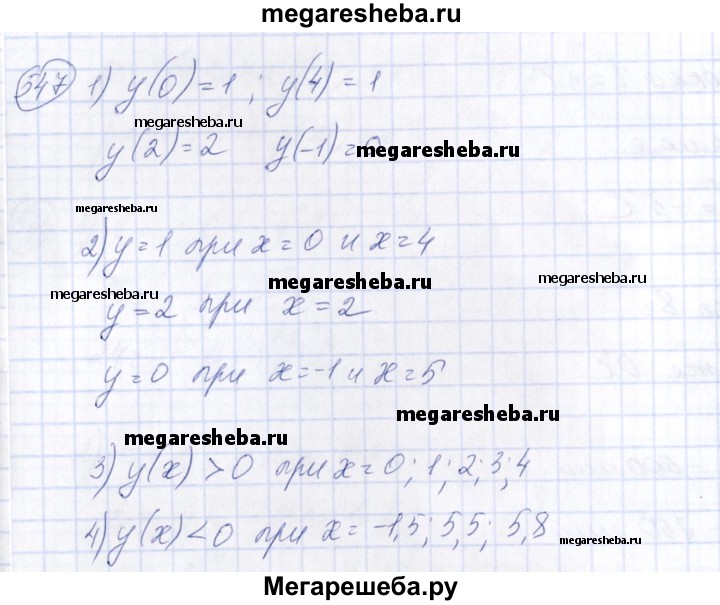 megaresheba.ru
547 1) y(0)=1; y(4)=1
megaresheba.ru
y(2)=2 y(-1)=0
megaresheba.ru
megaresheba.ru
2) y=1 при x=0 и x=4
megaresheba.ru
megaresheba.ru
megaresheba.ru
y=2 при x=2
y=0 при x=-1 и x=5
megaresheba.ru
megaresheba.ru
3) y(x)>0 при x=0; 1; 2; 3; 4
4) y(x)<0 при x=-1,5; 5,5; 5,8
megaresheba.ru
Мегарешеба.ру